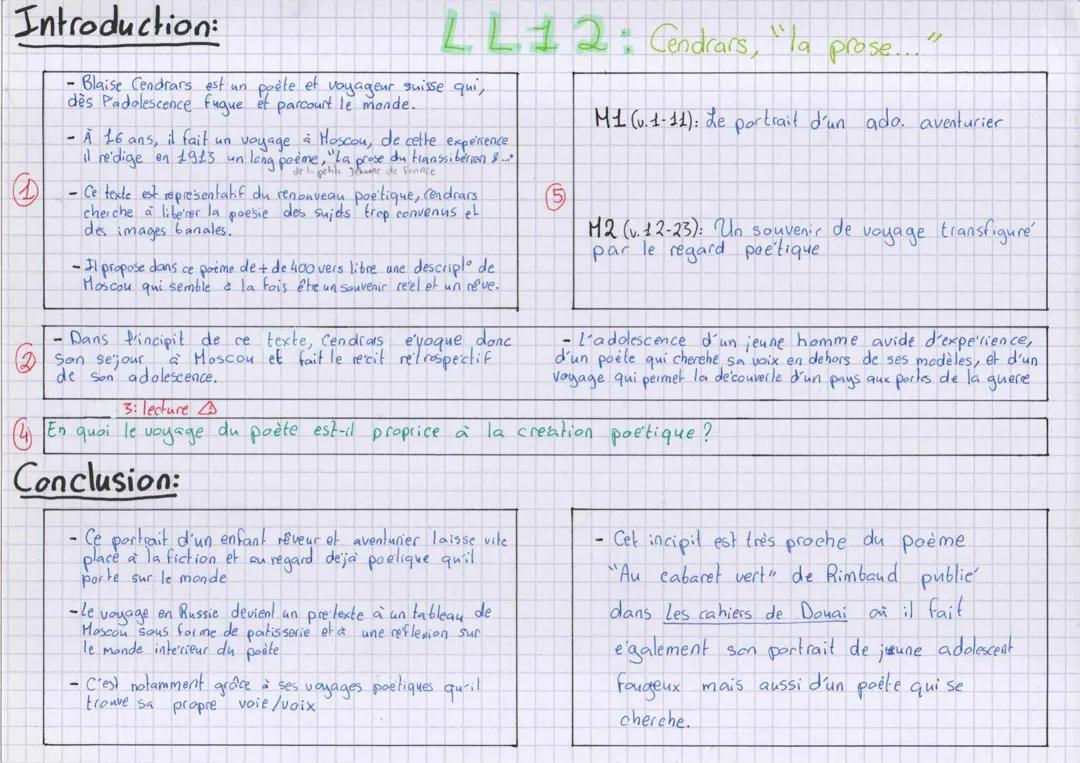 Introduction:
LL12: Cendrars, "la prose..."
- Blaise Cendrars est un poète et voyageur suisse qui,
dès l'adolescence fugue et parcourt le monde.
- À 16 ans, il fait un voyage à Moscou, de cette expérience
il rédige en 1913 un long poème, "La prose du transsibérien &..."
de la petite Jehanne de France
① - Ce texte est représentatif du renouveau poétique, Cendrars
cherche à libérer la poesie des sujets trop convenus et
des images banales.
- Il propose dans ce poème de + de 400 vers libre une descript° de
Moscou qui semble à la fois être un souvenir réel et un rêve.
⑤
M1 (v.1-11): Le portrait d'un ado. aventurier
M2 (v.12-23): Un souvenir de voyage transfiguré
par le regard poétique
② - Dans l'incipit de ce texte, Cendrars évoque donc
son séjour à Moscou et fait le récit rétrospectif
de son adolescence.
- L'adolescence d'un jeune homme avide d'expérience,
d'un poète qui cherche sa voix en dehors de ses modèles, et d'un
voyage qui permet la découverte d'un pays aux portes de la guerre
3: lecture ⚠
④ En quoi le voyage du poète est-il proprice à la création poétique ?
Conclusion:
- Ce portrait d'un enfant rêveur et aventurier laisse vite
place à la fiction et au regard déjà poétique qu'il
porte sur le monde
- Le voyage en Russie devient un prétexte à un tableau de
Moscou sous forme de patisserie et à une réflexion sur
le monde intérieur du poète
- C'est notamment grâce à ses voyages poétiques qu'il
trouve sa propre voie/voix
- Cet incipit est très proche du poème
"Au cabaret vert" de Rimbaud publié
dans Les cahiers de Douai où il fait
également son portrait de jeune adolescent
fougeux mais aussi d'un poète qui se
cherche.